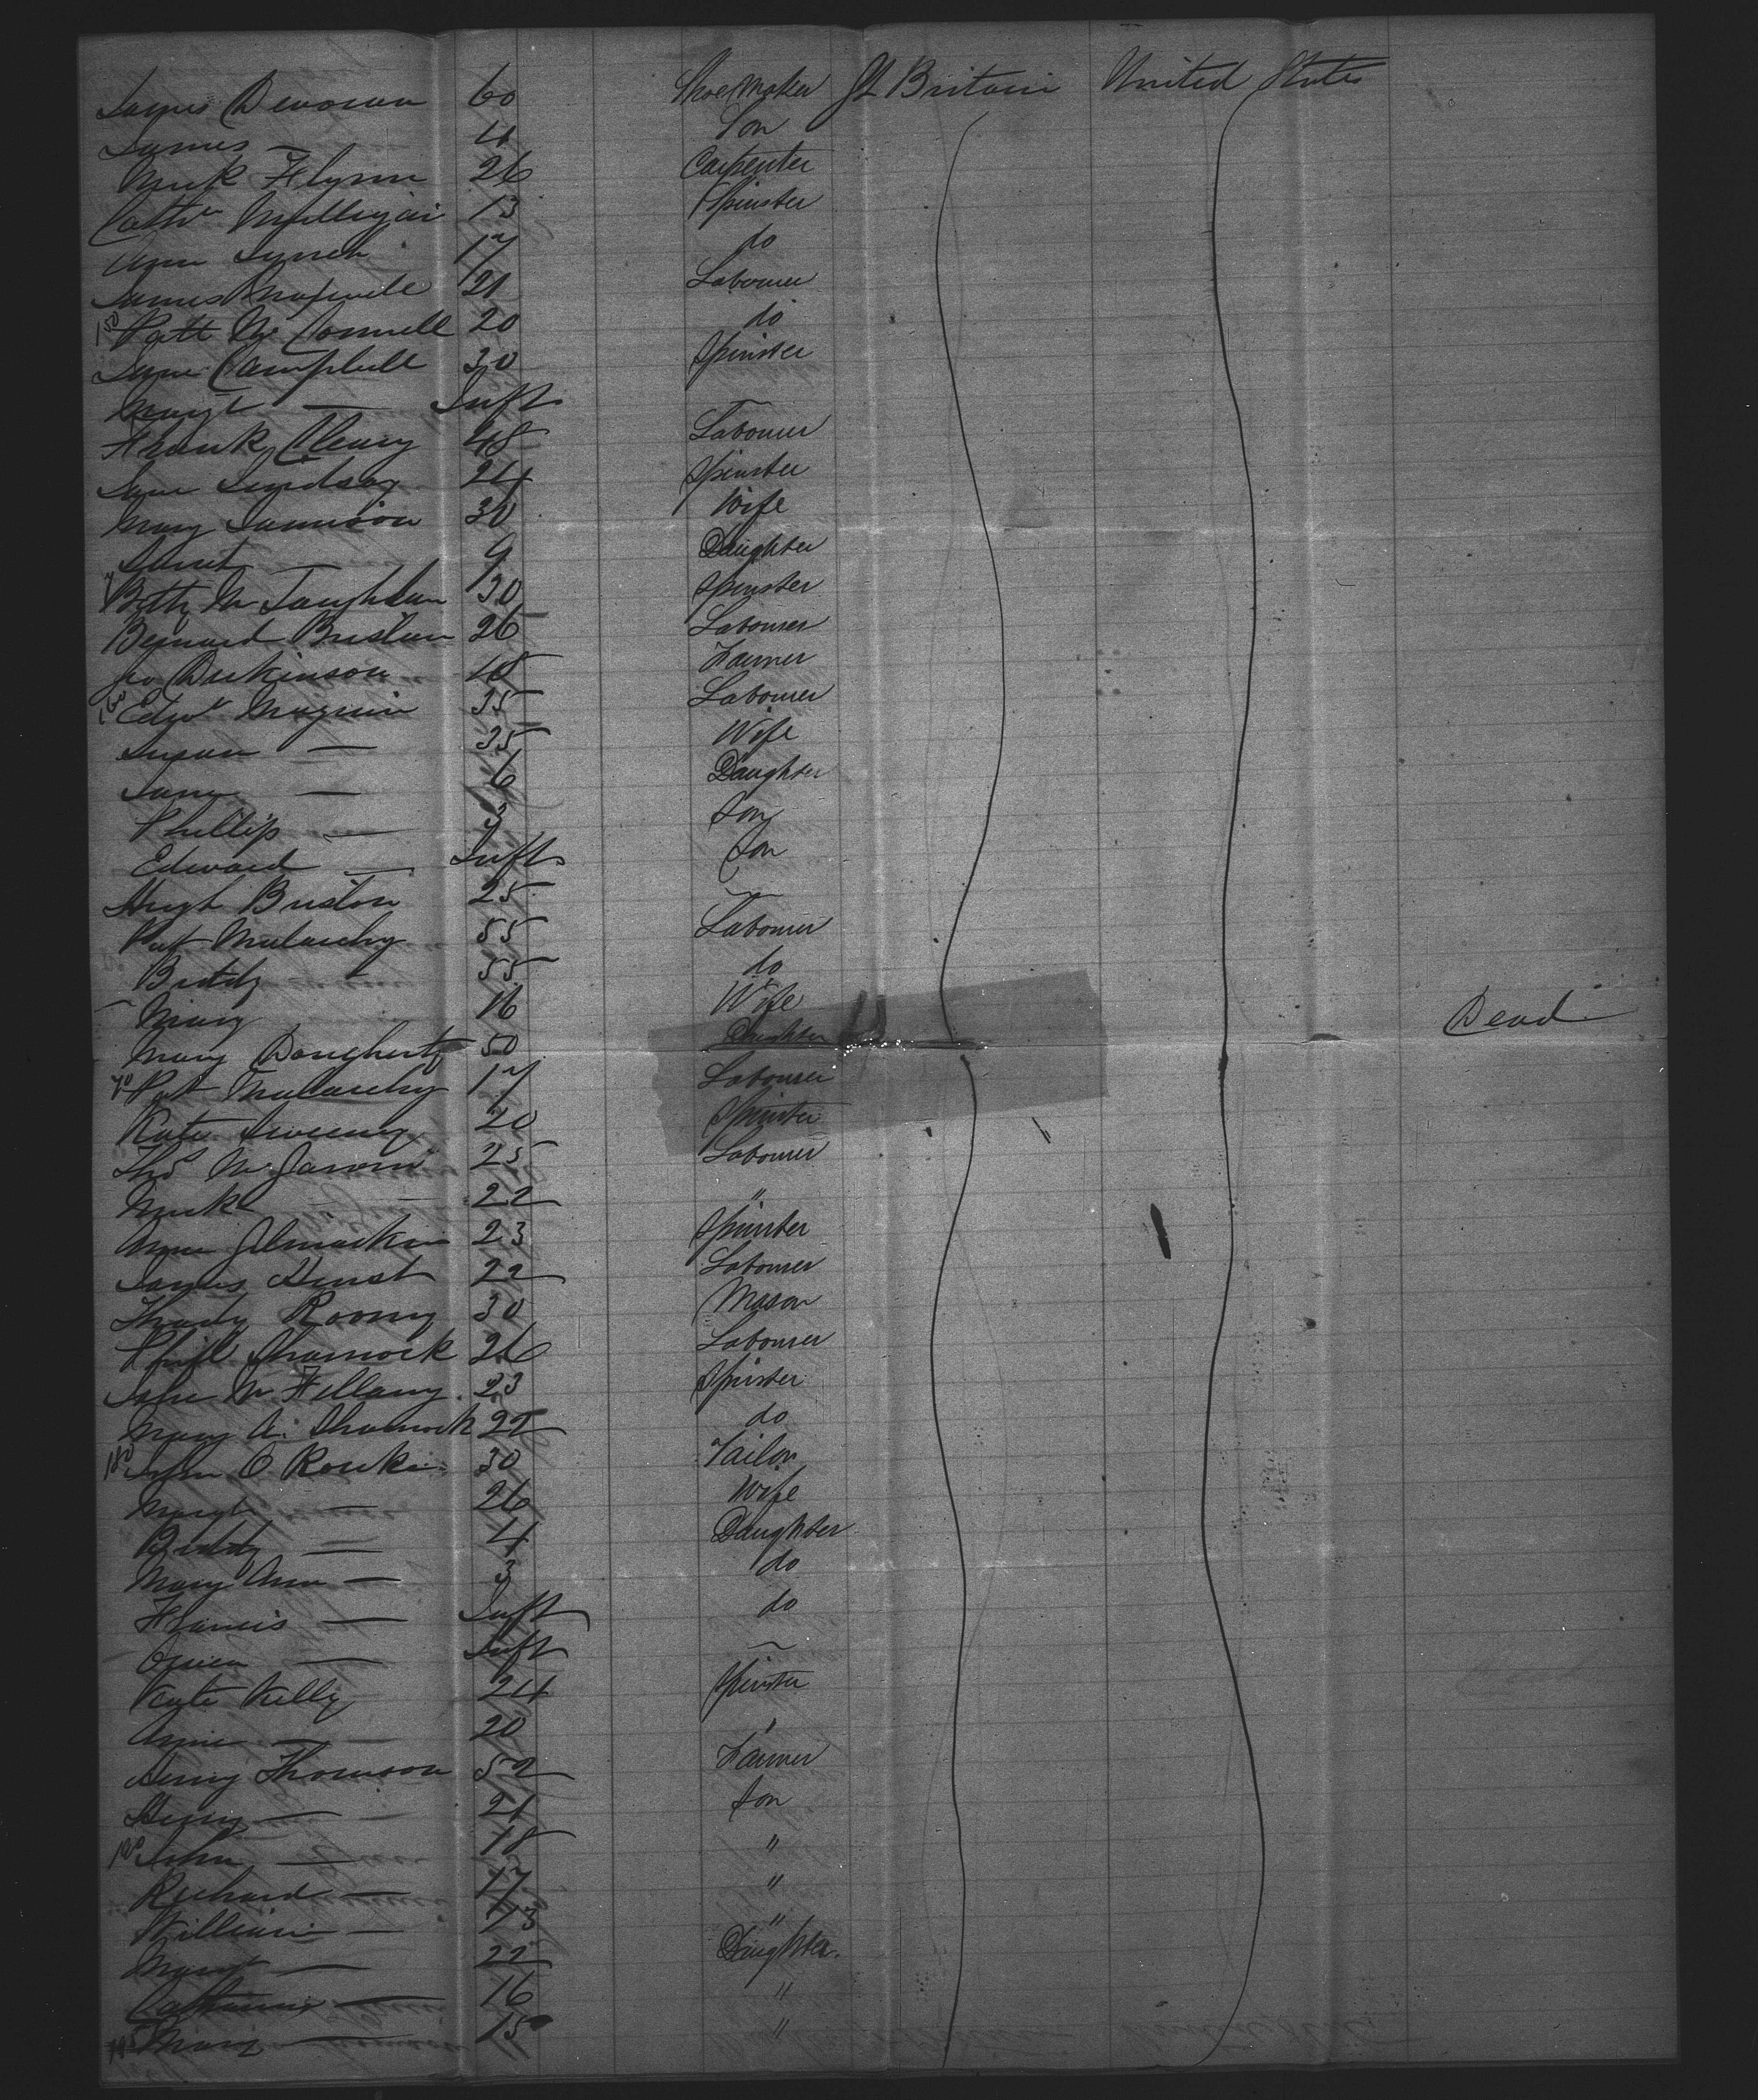 James Devoran 60 Shoemaker Gt Britain United States
James — 11 Son
Mick Flynn 26 Carpenter
Cathn Mulligan 13 Spinster
Ann Lynch 17 do
James Maxwell 21 Labourer
150 Patt Mc Connell 20 do
Jane Campbell 30 Spinster
Margt — Inft —
Frank Cleary 48 Labourer
Jane Lindsay 24 Spinster
Mary Jamison 30 Wife
Janet — 9 Daughter
Betty Mc Laughlan 30 Spinster
Bernard Breslan 26 Labourer
Jno Dickinson 18 Farmer
160 Edwd Maguin 35 Labourer
Susan — 35 Wife
Jane — 6 Daughter
Phillip — 3 Son
Edward — Inft Son
Hugh Briston 25 —
Pat Mularchy 55 Labourer
Biddy 55 do
Mary 16 Wife Dead
Mary Dougherty 50 Daughter
70 Pat Mularchy 17 Labourer
Kate Sweeney 20 Spinster
Thos Mc 25 Labourer
Mick — 22 "
Anne 23 Spinster
James Hurst 22 Labourer
Thady Roony 30 Mason
Phill Shamrock 26 Labourer
Mc Fellany 23 Spinster
Mary A. Shamrock 22 do
180 John O Rourke 30 Tailor
Margt — 26 Wife
Biddy — 4 Daughter
Mary Ann — 3 do
Francis — Inft do
Owen — Inft —
Kate Kelly 24 Spinster
Annie — 20 "
Henry Thomson 52 Farmer
Henry — 21 Son
190 John — 18 "
Richard — 17 "
William — 13 "
Margt — 22 Daughter.
Catherine — 16 "
195 Mary — 15 "